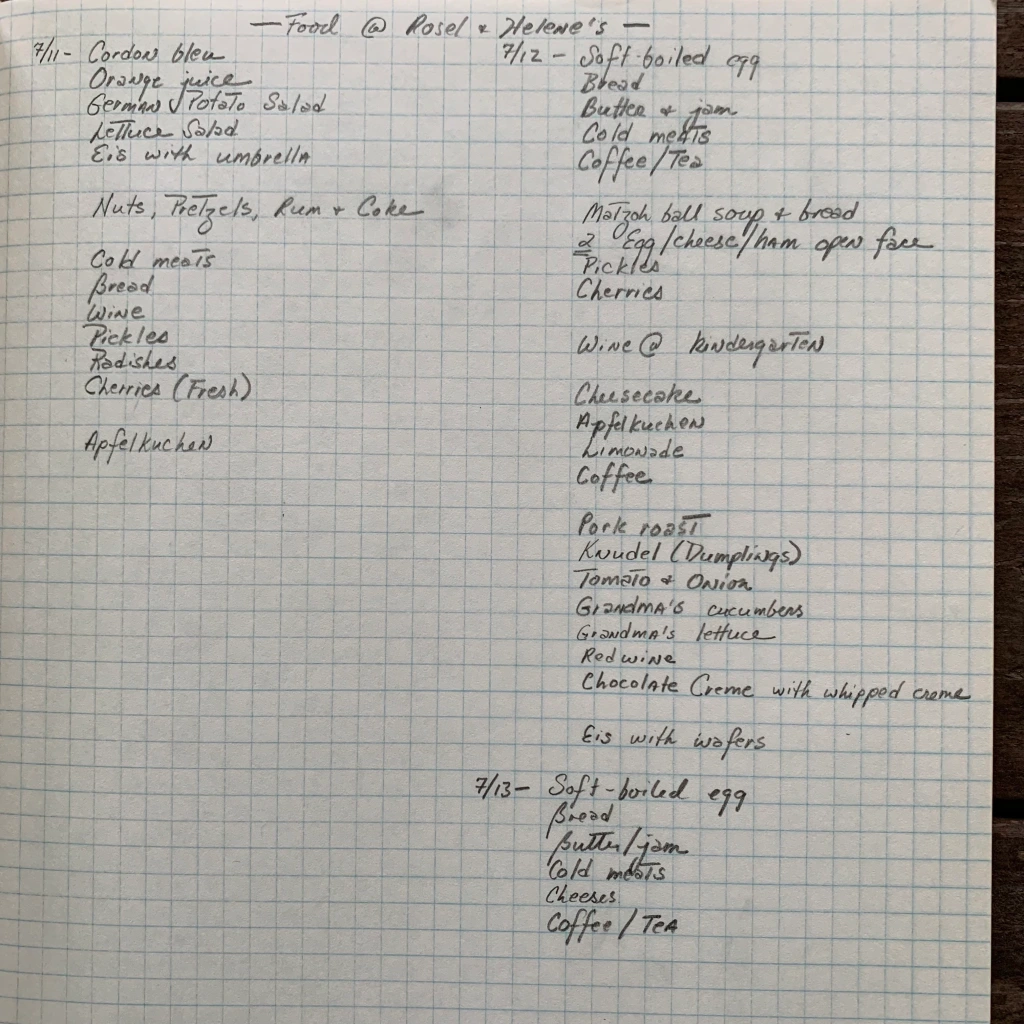 — Food @ Rosel & Helene's —
7/11 - Cordon bleu
Orange juice
German Potato Salad
Lettuce Salad
Eis with umbrella
Nuts, Pretzels, Rum + Coke
Cold meats
Bread
Wine
Pickles
Radishes
Cherries (Fresh)
Apfelkuchen
7/12 - Soft-boiled egg
Bread
Butter & jam
Cold meats
Coffee/Tea
Matzoh ball soup + bread
2 Egg/cheese/ham open face
Pickles
Cherries
Wine @ kindergarten
Cheesecake
Apfelkuchen
Limonade
Coffee
Pork roast
Knudel (Dumplings)
Tomato & Onion
Grandma's cucumbers
Grandma's lettuce
Red wine
Chocolate Creme with whipped creme
Eis with wafers
7/13 - Soft-boiled egg
Bread
Butter/jam
Cold meats
Cheeses
Coffee / Tea